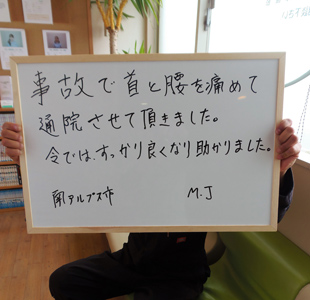 事故で首と腰を痛めて
通院させて頂きました。
今では、すっかり良くなり助かりました。
南アルプス市 M.J